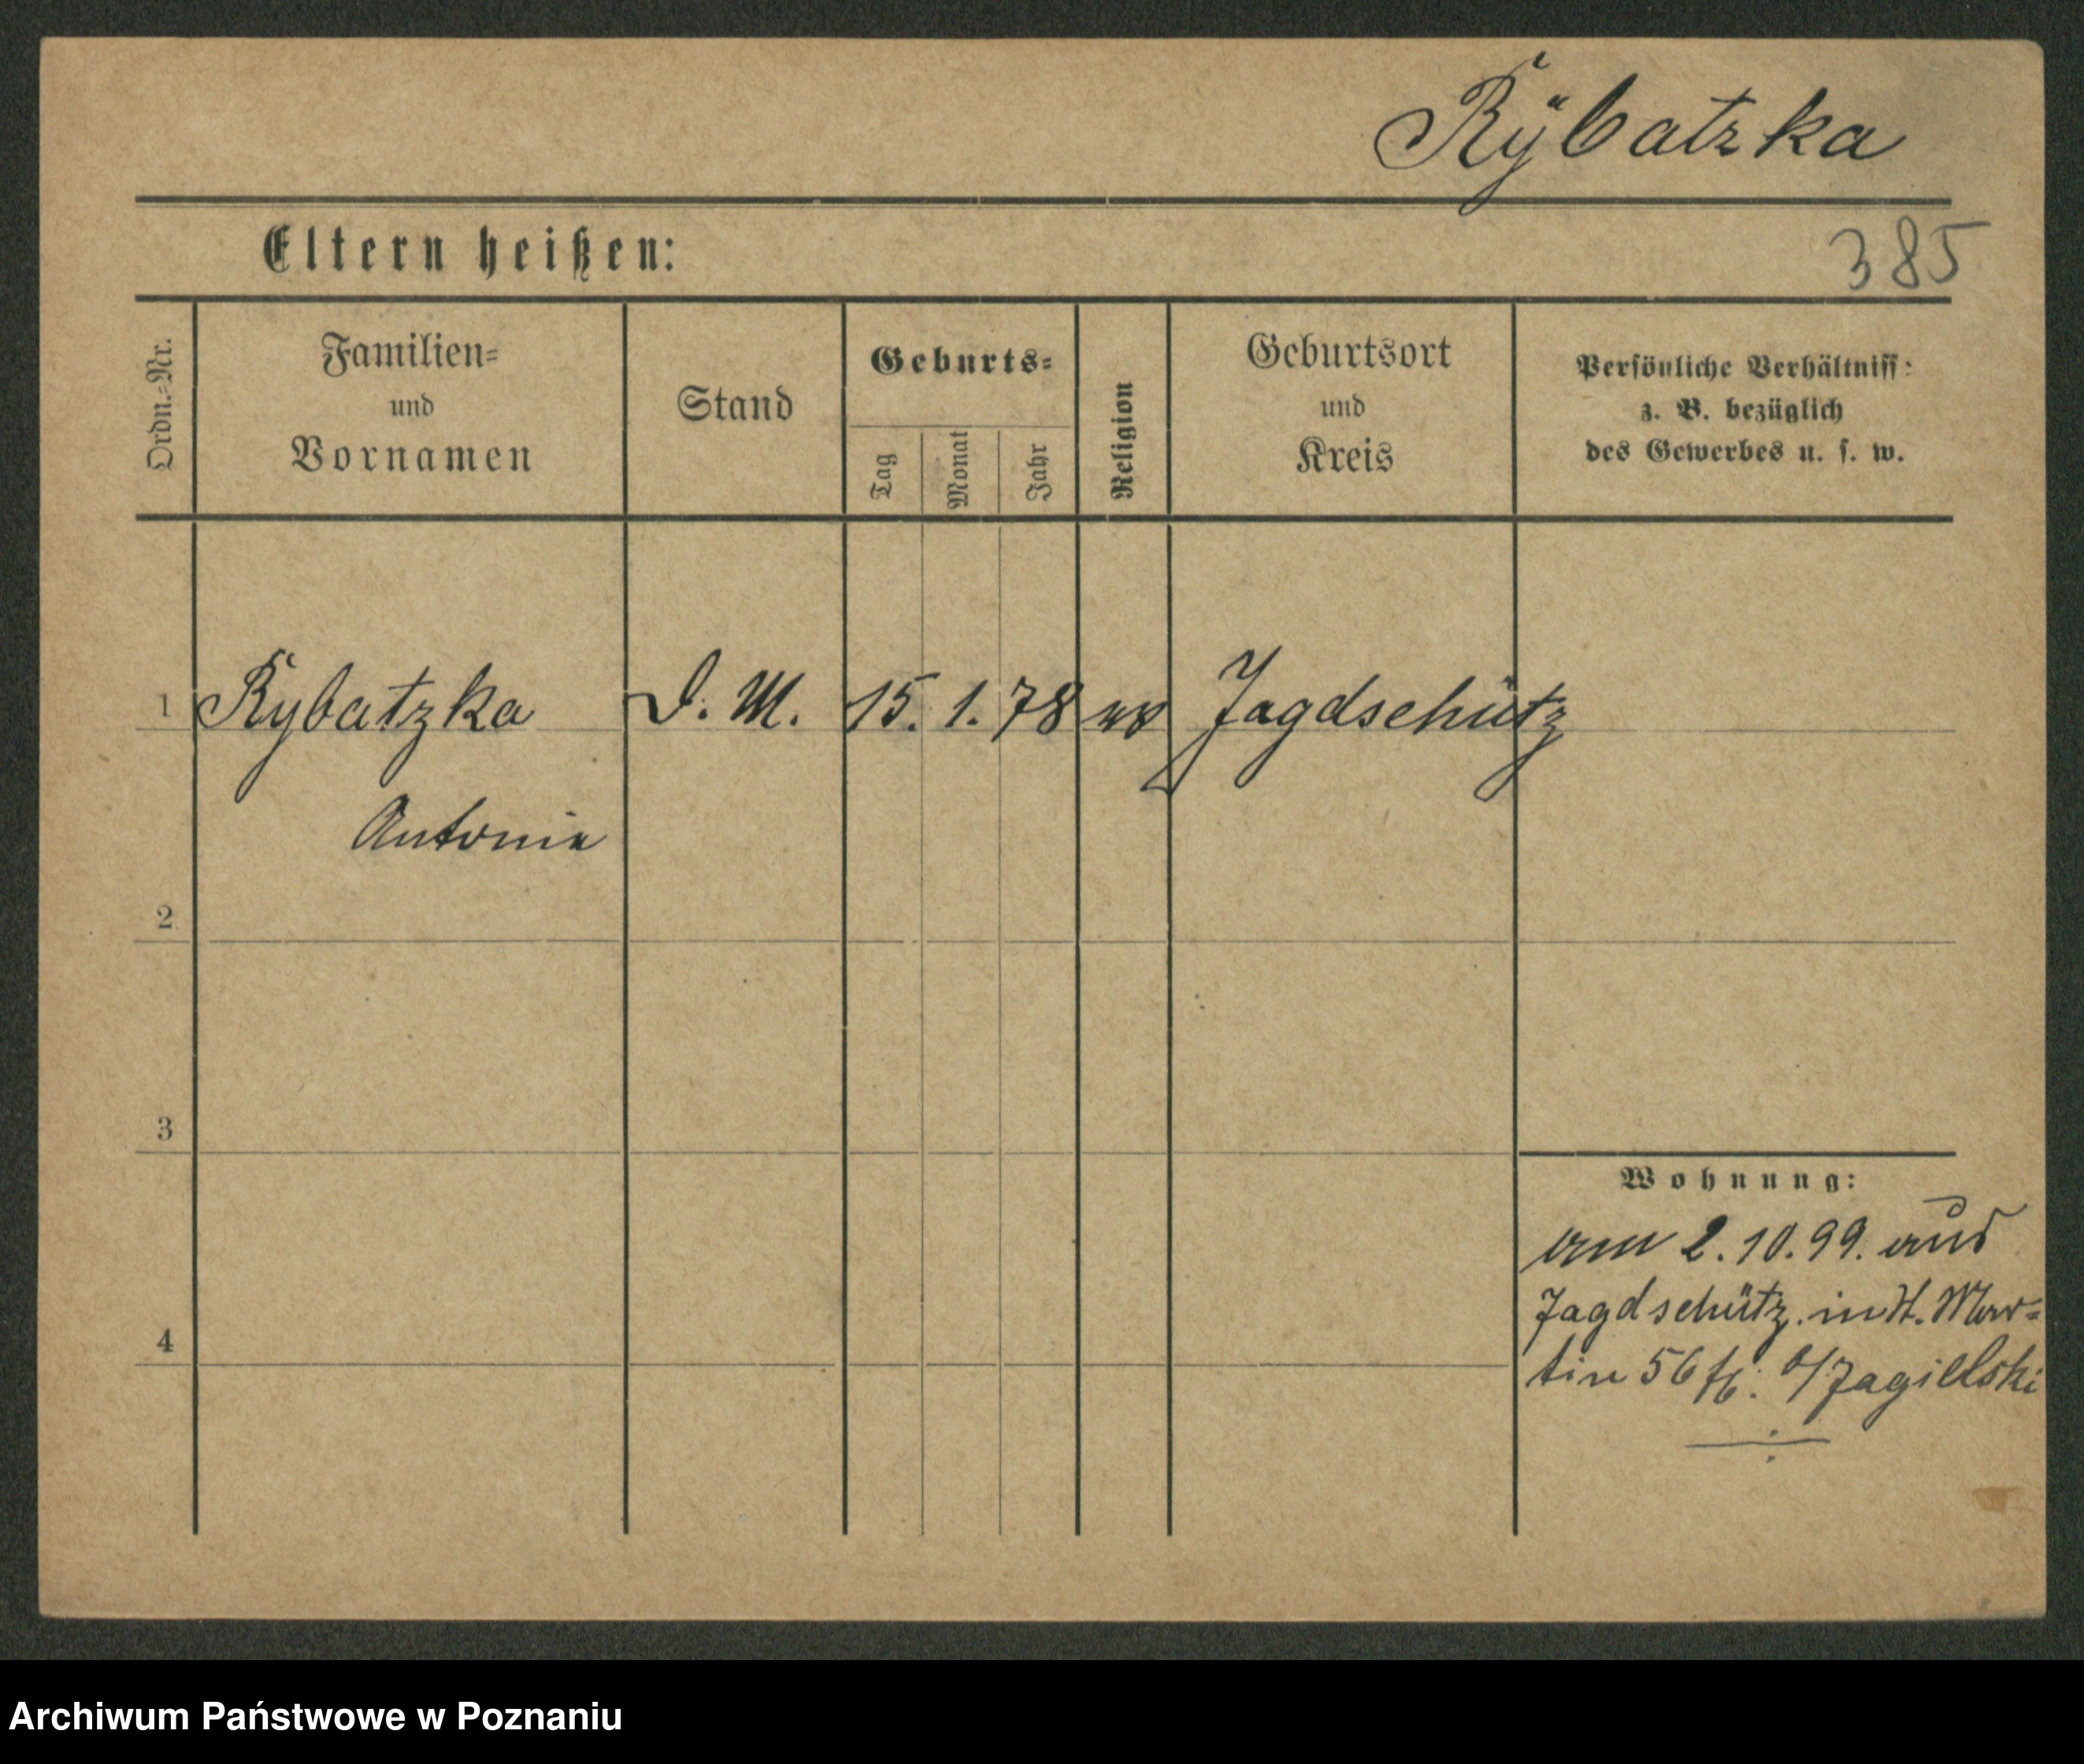 Rÿbatzka
385
Eltern heißen:
Ordn.=Nr.
Familien=
und
Vornamen
Stand
Geburts=
Tag
Monat
Jahr
Religion
Geburtsort
und
Kreis
Persönliche Verhältniss:
z. B. bezüglich
des Gewerbes u. s. w.
1 Rybatzka D. M. 15. 1. 78 Jagdschütz
Antonie
2
3
4
Wohnung:
am 2. 10. 99. aus
Jagdschütz. in St. Mar=
tin 56 b/Jagielski
Archiwum Państwowe w Poznaniu